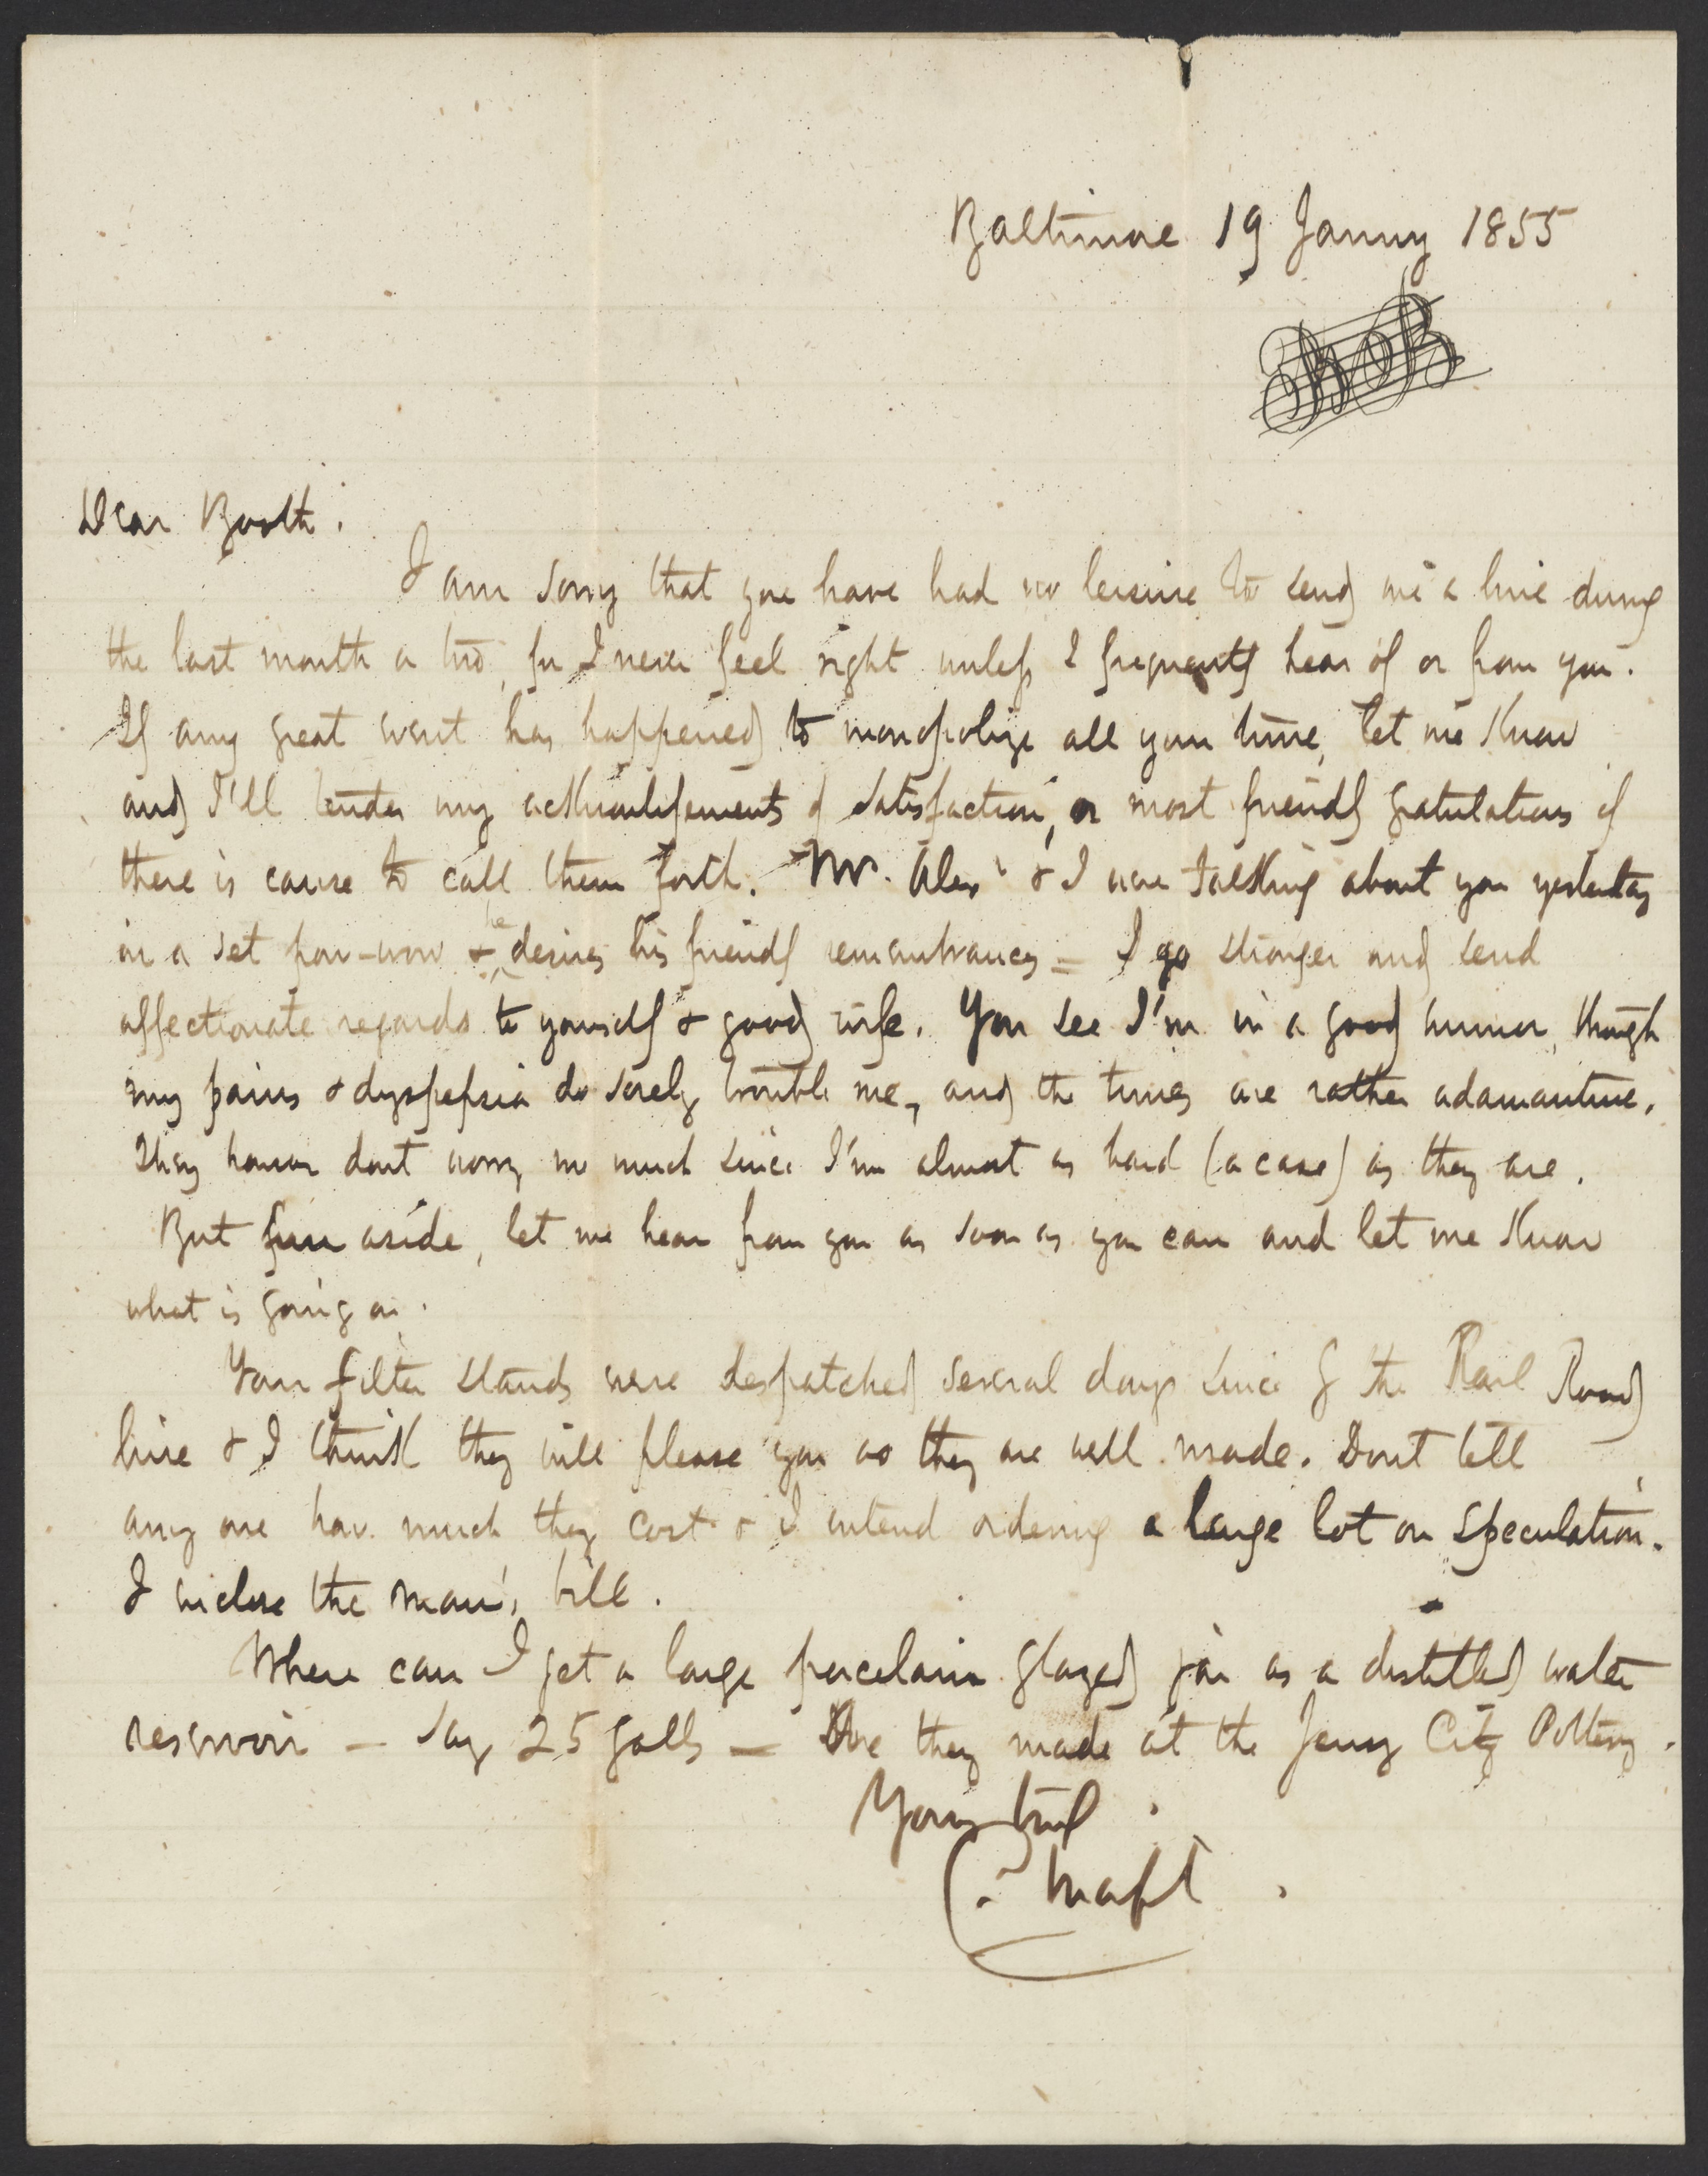 Baltimore 19 Januy 1855
Dear Booth:
I am sorry that you have had no leisure to send me a line during
the last month or two, for I never feel right unless I frequently hear of or from you.
If any great event has happened to monopolize all your time, let me know
and I'll tender my acknowlegements of satisfaction, or most friendly gratulations if
there is cause to call them forth. Mr. Alexr & I were talking about you yesterday
in a set pow-wow & he desires his friendly remembrances = I go stronger and send
affectionate regards to yourself & good wife. You see I'm in a good humor, though
my pains & dyspepsia do sorely trouble me, and the times are rather adamantine.
They however dont worry me much since I'm almost as hard (a case) as they are.
But fun aside, let me hear from you as soon as you can and let me know
what is going on.
Your filter stands were despatched several days since by the Rail Road
line & I think they will please you as they are well made. Dont tell
any one how much they cost & I intend ordering a large lot on speculation.
I inclose the man's bill.
Where can I get a large porcelain glazed jar as a distilled water
reservoir – say 25 galls – Are they made at the Jersey City Pottery.
Yours truly
C. Morfit